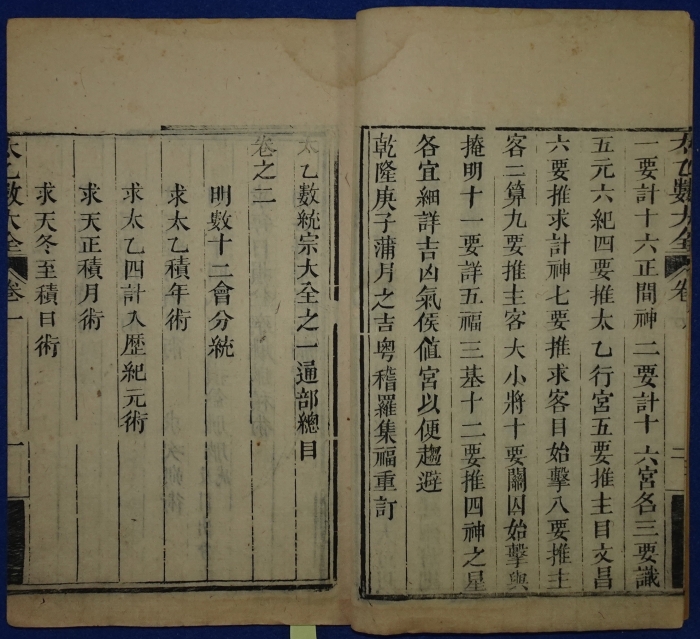 太乙數大全 卷一 二
一要計十六正間神二要計十六宮名三要識
五元六紀四要推太乙行宮五要推主目文昌
六要推求計神七要推求客目始擊八要推主
客二算九要推主客大小將十要關囚始擊與
掩明十一要詳五福三基十二要推四神之星
各宜細詳吉凶氣候值宮以便趨避
乾隆庚子蒲月之吉粵稽羅集福重訂
太乙數統宗大全之一通部總目
卷之二
明數十二會分統
求太乙積年術
求太乙四計入歷紀元術
求天正積月術
求天冬至積日術
太乙數大全 卷一 一